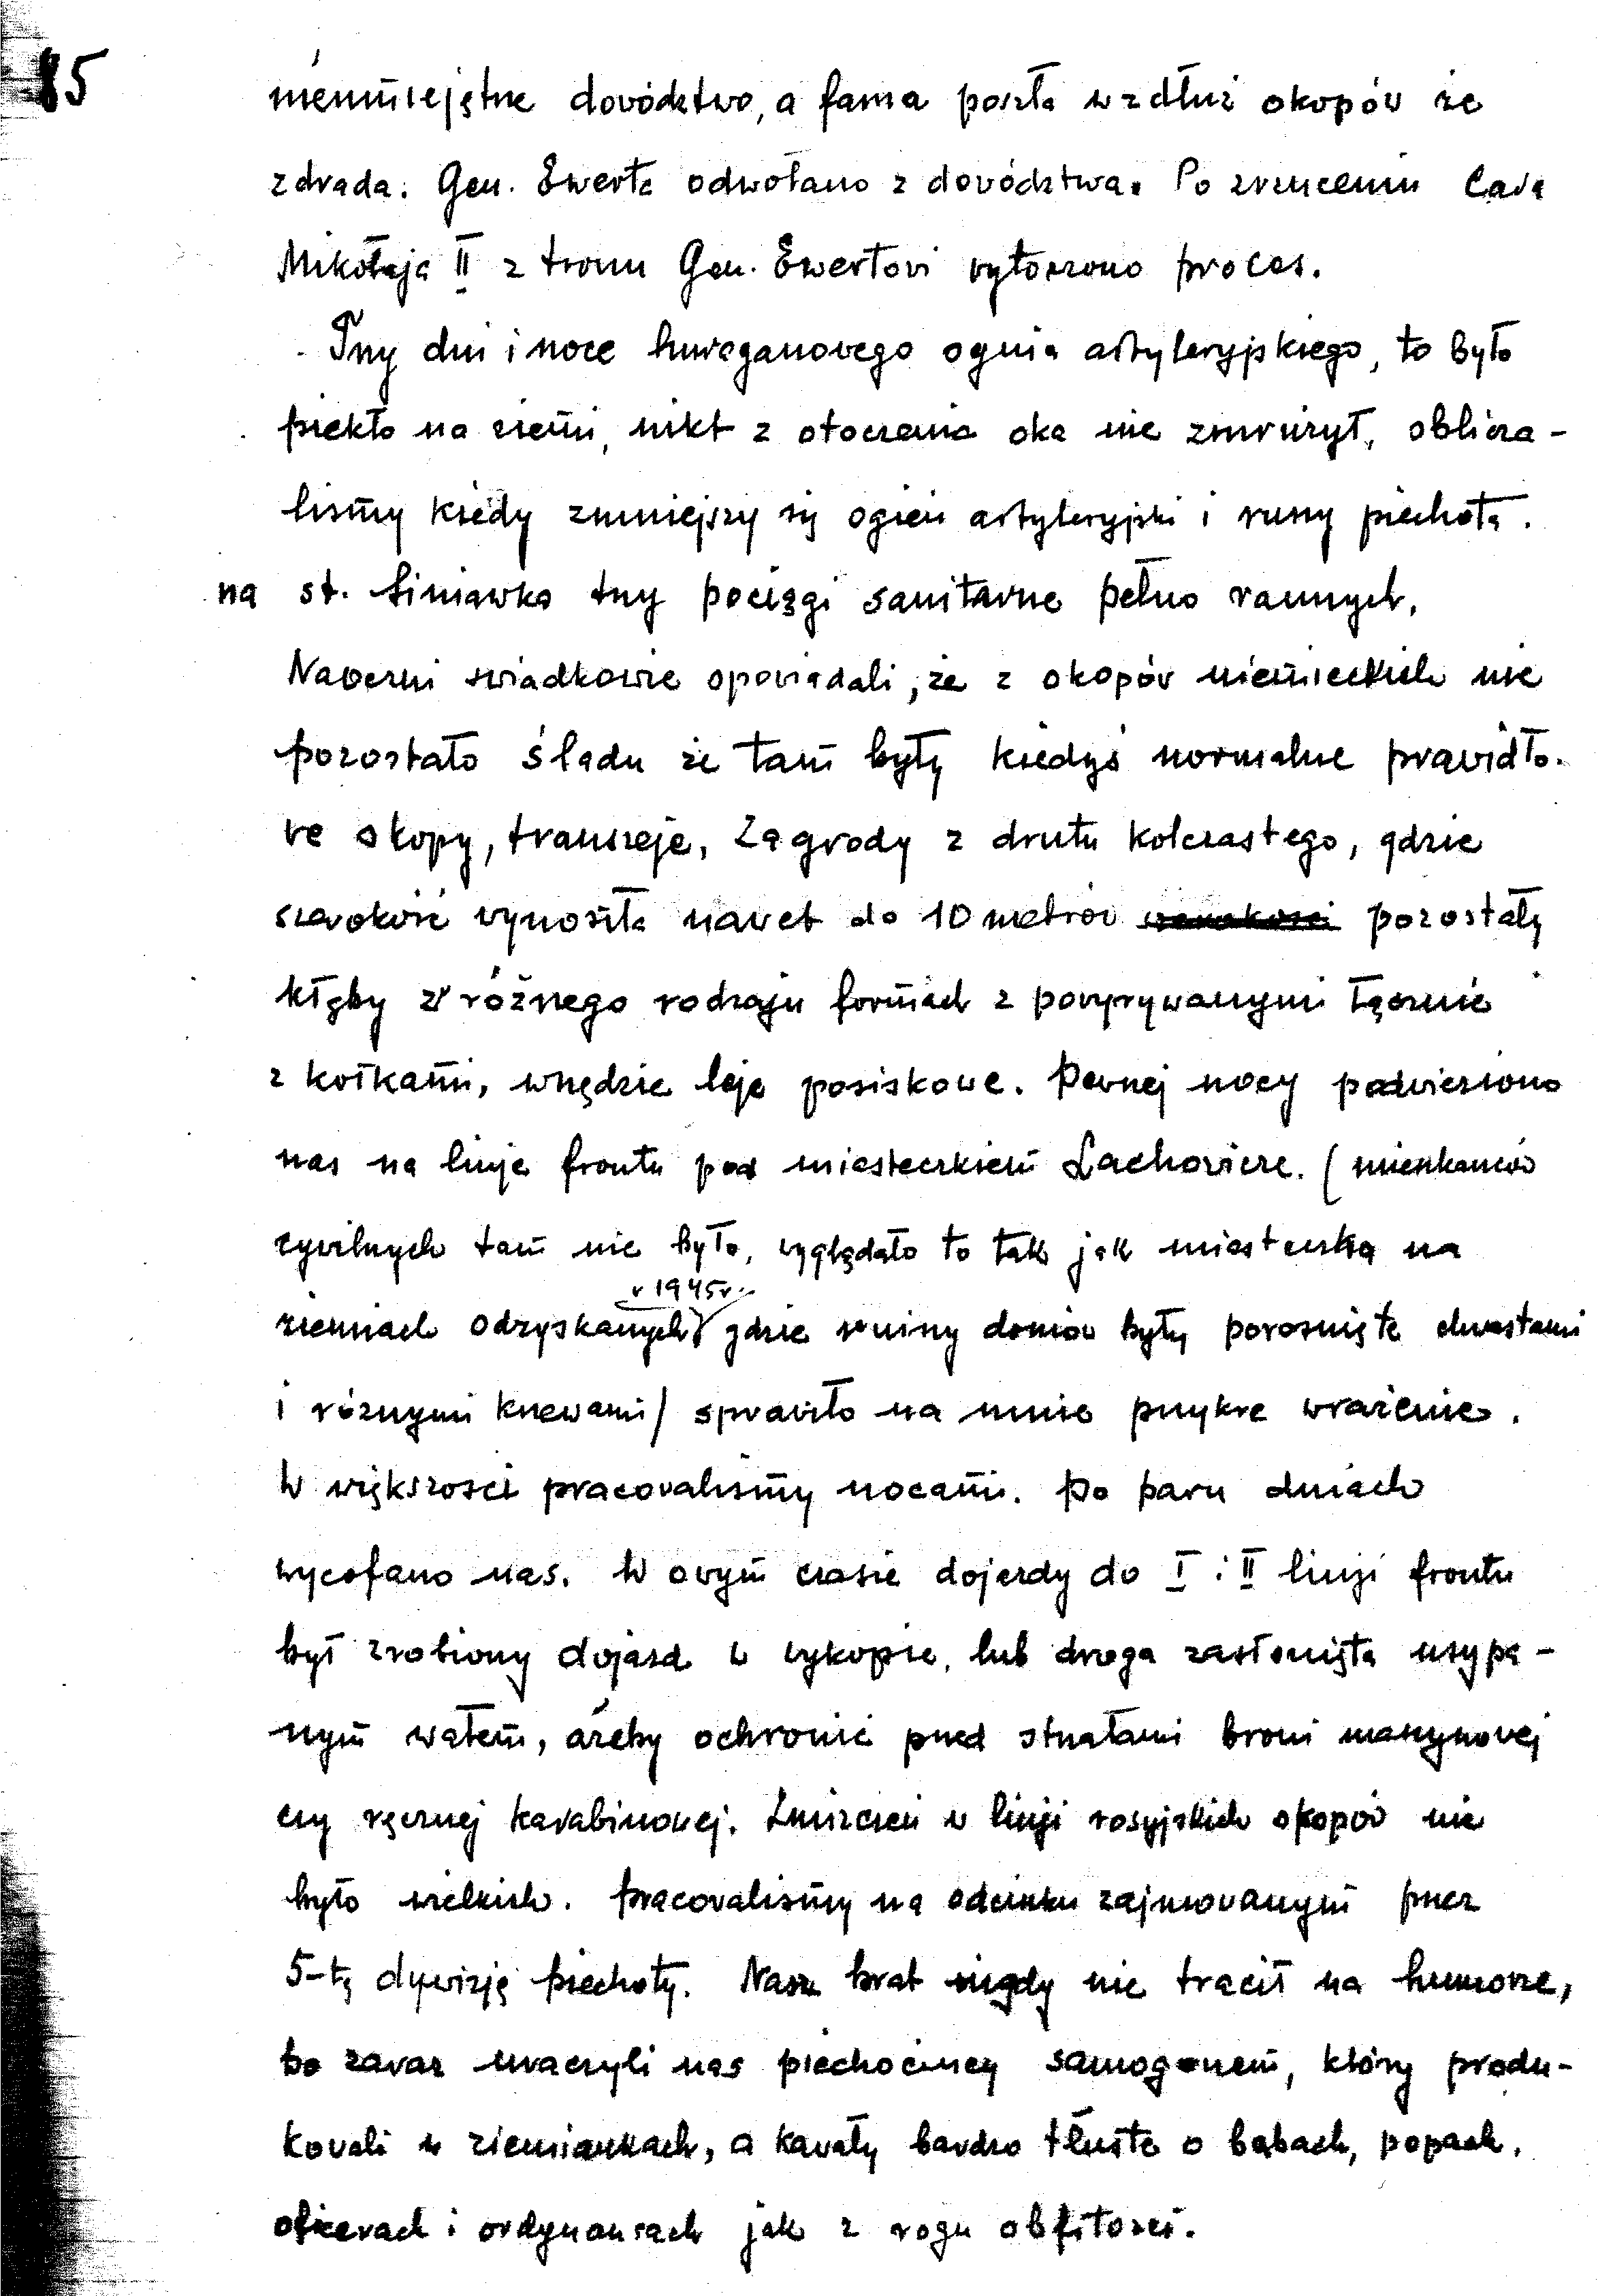 85
nieumiejętne dowództwo, a fama poszła wzdłuż okopów że
zdrada. Gen. Ewerta odwołano z dowództwa. Po zrzuceniu Cara
Mikołaja II z tronu Gen. Ewertowi wytoczono proces.
Trzy dni i noce huraganowego ognia artyleryjskiego, to było
piekło na ziemi, nikt z otoczenia oka nie zmrużył, oblicza-
liśmy kiedy zmniejszy się ogień artyleryjski i ruszy piechota.
na st. Siniawka trzy pociągi sanitarne pełno rannych.
Naoczni świadkowie opowiadali, że z okopów niemieckich nie
pozostało śladu że tam były kiedyś normalne prawidło-
we okopy, transzeje, zagrody z drutu kolczastego, gdzie
szerokość wynosiła nawet do 10 metrów pozostały
kłęby w różnego rodzaju formach z powyrywanymi łącznie
z kołkami, wszędzie leje pociskowe. Pewnej nocy podwieziono
nas na linje frontu pod miasteczkiem Lachowicze. (mieszkańców
cywilnych tam nie było, wyglądało to tak jak miasteczka na
w 1945r.
ziemiach odzyskanych gdzie ruiny domów były porośnięte chwastami
i różnymi krzewami/ sprawiło na mnie przykre wrażenie.
W większości pracowaliśmy nocami. Po paru dniach
wycofano nas. W owym czasie dojazdy do I i II linji frontu
był zrobiony dojazd w wykopie, lub droga zasłonięta usypa-
nym wałem, ażeby ochronić przed strzałami broni maszynowej
czy ręcznej karabinowej. Zniszczeń w linji rosyjskich okopów nie
było wielkich. Pracowaliśmy na odcinku zajmowanym przez
5-tą dywizję piechoty. Nasz brat nigdy nie tracił na humorze,
bo zaraz uraczyli nas piechocińcy samogonem, który produ-
kowali w ziemiankach, a kawały bardzo tłuste o babach, popach,
oficerach i ordynansach jak z rogu obfitości.